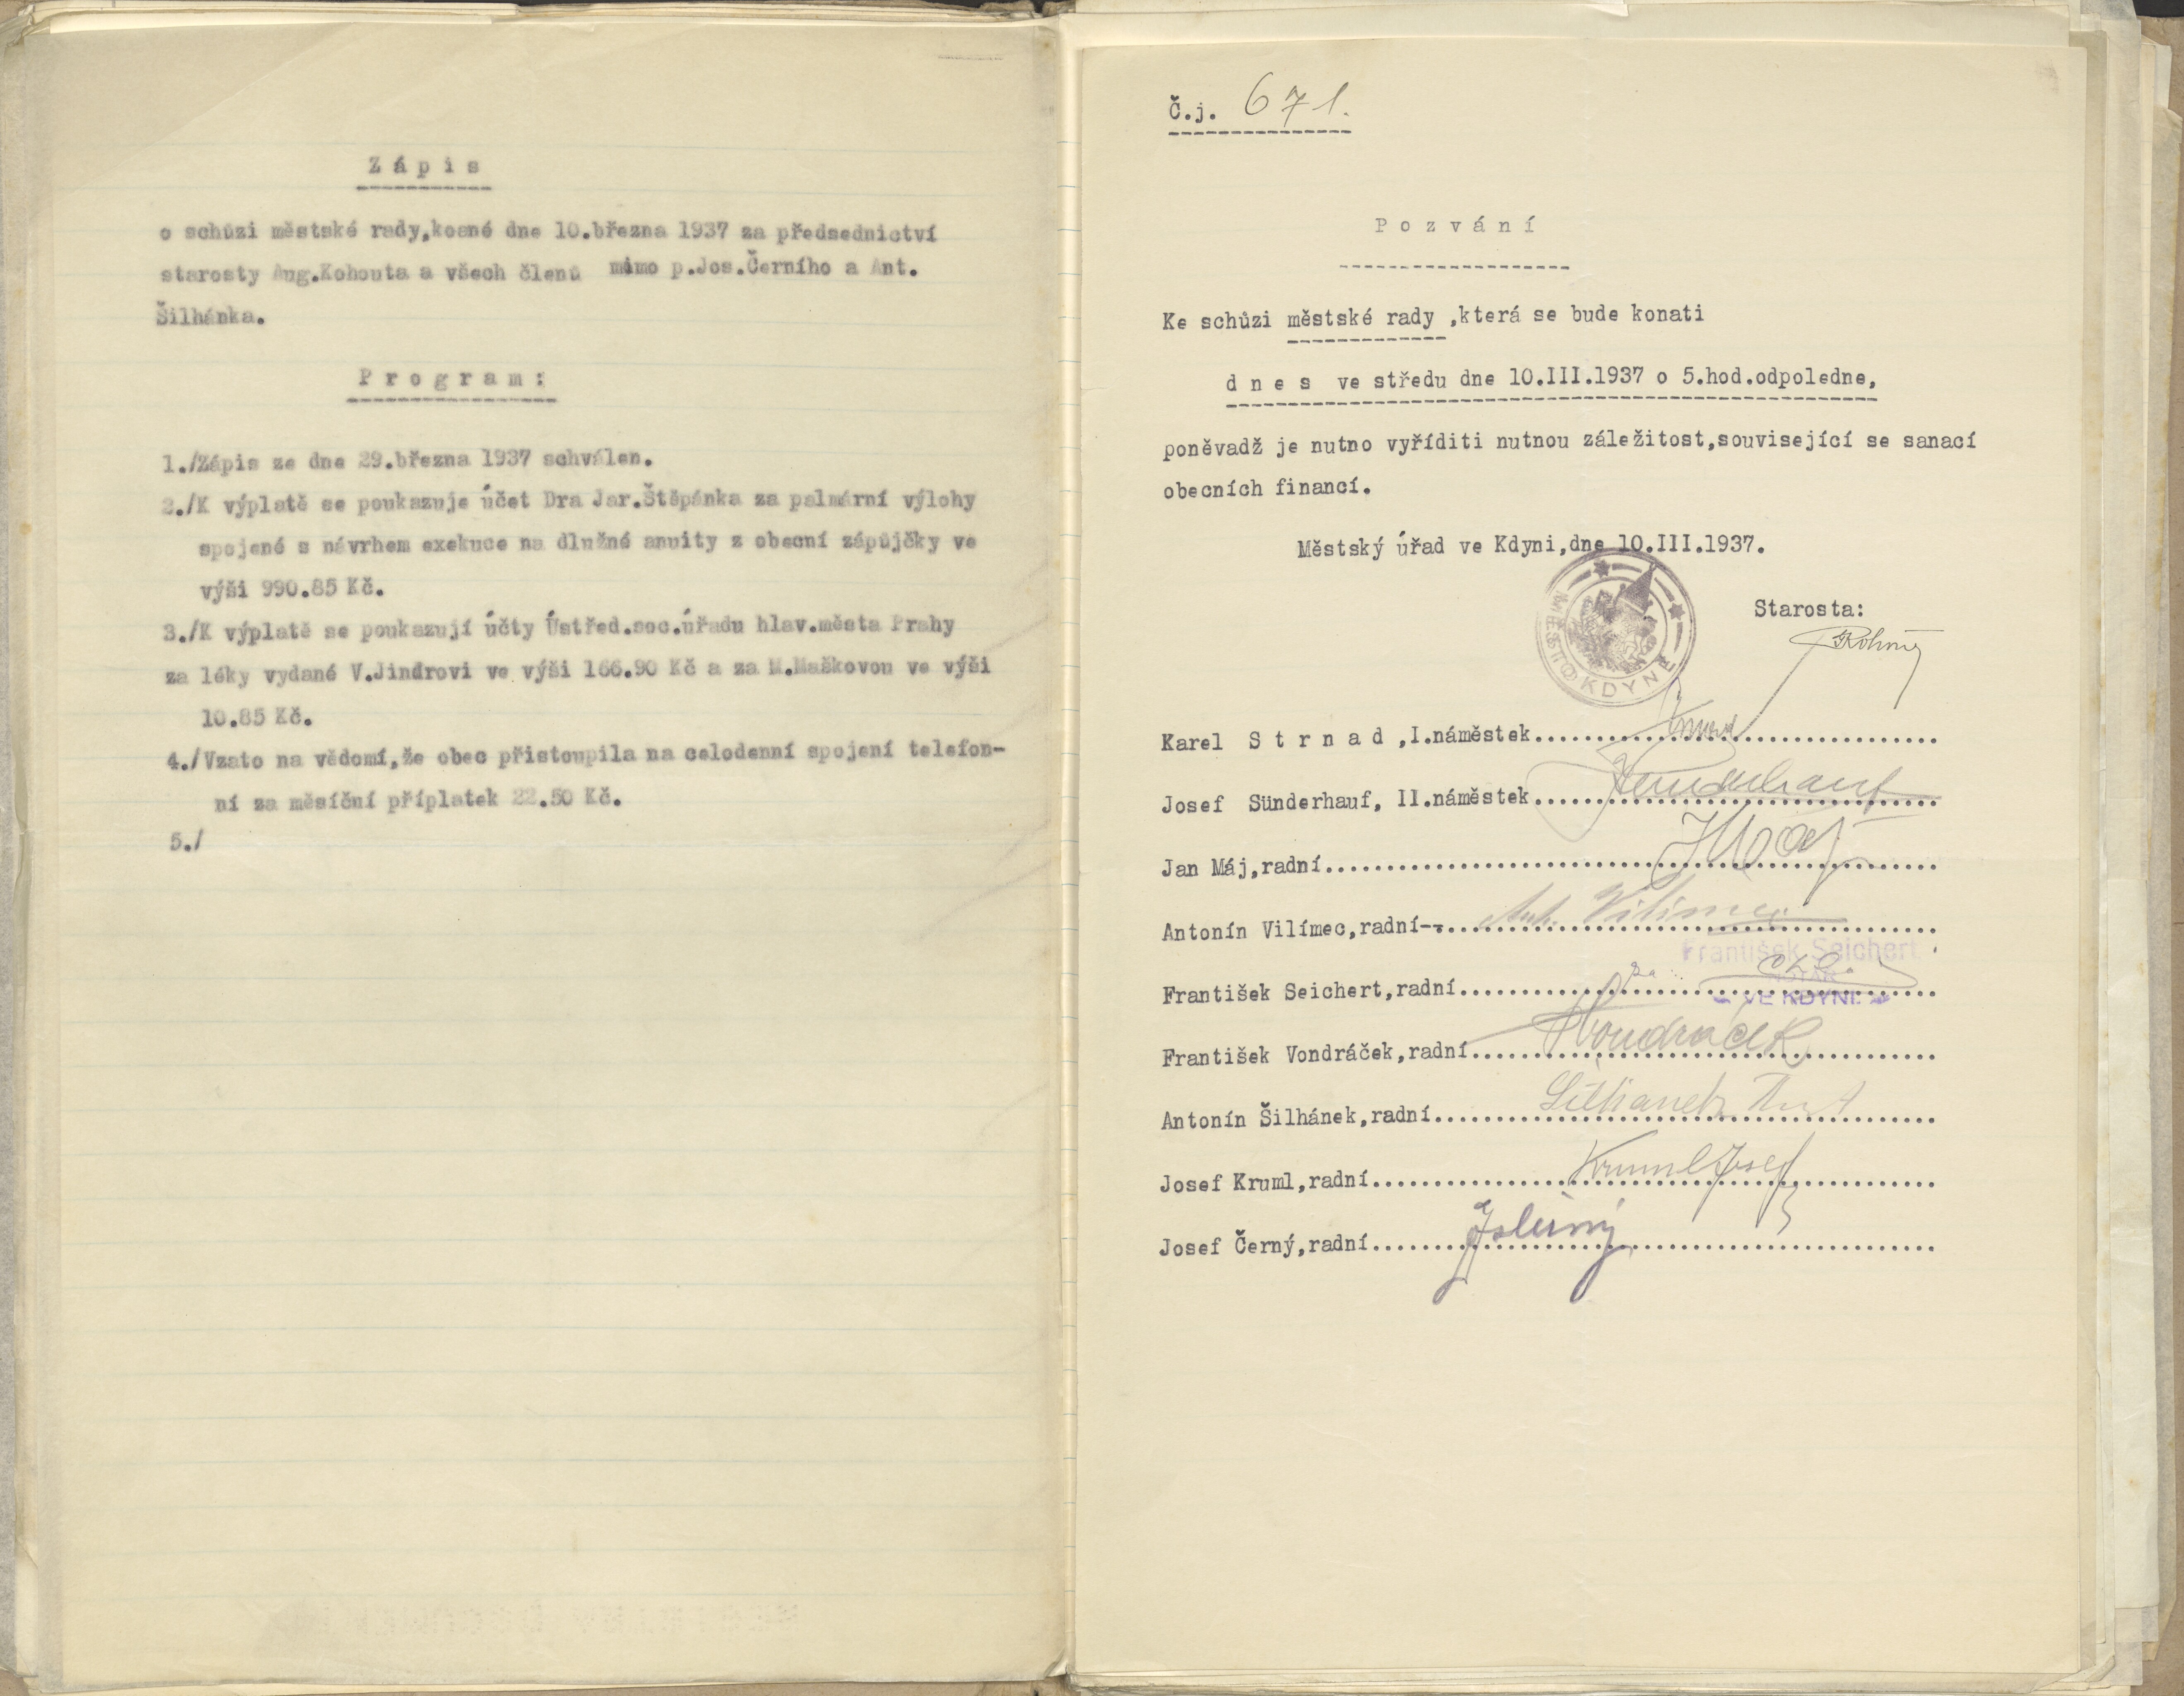 Z á p i s
o schůzi městské rady,koané dne 10.března 1937 za předsednictví
starosty Aug.Kohouta a všech členů mimo p.Jos.Černího a Ant.
Šilhánka.
P r o g r a m :
1./Zápis ze dne 29.března 1937 schválen.
2./K výplatě se poukazuje účet Dra Jar.Štěpánka za palmární výlohy
spojené s návrhem exekuce na dlužné anuity z obecní zápůjčky ve
výši 990.85 Kč.
3./K výplatě se poukazují účty Ústřed.soc.úřadu hlav.města Prahy
za léky vydané V.Jindrovi ve výši 166.90 Kč a za M.Maškovou ve výši
10.85 Kč.
4./Vzato na vědomí,že obec přistoupila na celodenní spojení telefon-
ní za měsíční příplatek 22.50 Kč.
5./
Č.j. 671.
P o z v á n í
Ke schůzi městské rady ,která se bude konati
d n e s ve středu dne 10.III.1937 o 5.hod.odpoledne,
poněvadž je nutno vyříditi nutnou záležitost,související se sanací
obecních financí.
Městský úřad ve Kdyni,dne 10.III.1937.
MĚSTO KDYNĚ
Starosta:
Karel S t r n a d ,I.náměstek.................................
Josef Sünderhauf, II.náměstek................................. Sünderhauf
Jan Máj,radní.................................................. JMáj
Antonín Vilímec,radní-........................................ Ant. Vilímec
František Seichert
NOTÁŘ
VE KDYNI.
František Seichert,radní....................................... za
František Vondráček,radní...................................... Vondráček
Antonín Šilhánek,radní......................................... Šilhanek Ant
Josef Kruml,radní.............................................. Kruml Josef
Josef Černý,radní.............................................. JČerný